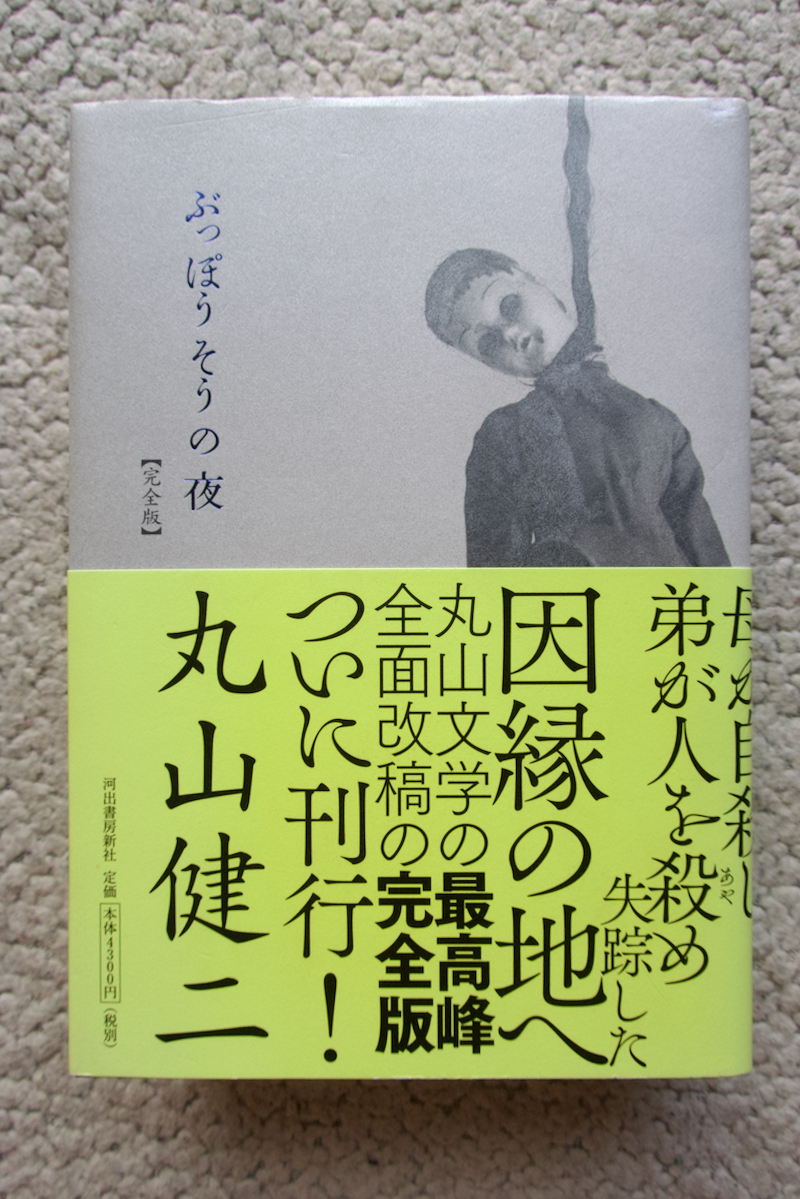 ぶっぽうそうの夜
【完全版】
母が自殺し
弟が人を殺め
あや
失踪した
因縁の地へ
丸山文学の最高峰
全面改稿の完全版
ついに刊行！
丸山健二
河出書房新社 定価 本体4300円（税別）